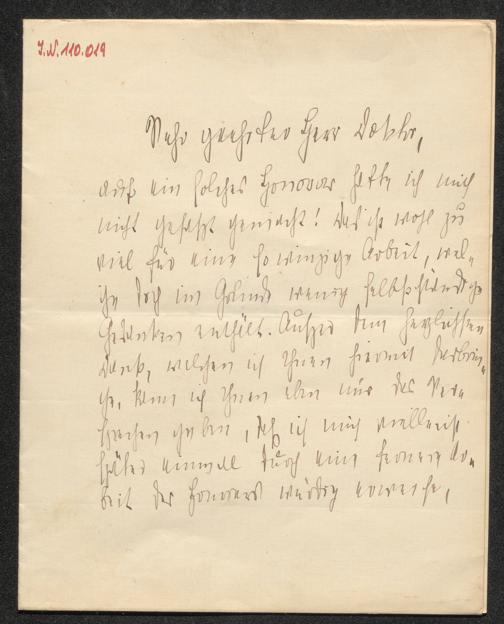 I.N. 110.019
Sehr geehrter Herr Doktor,
auf ein solches Honorar hatte ich mich
nicht gefaßt gemacht! Das ist wohl zu
viel für eine so winzige Arbeit, wel-
che doch im Grunde wenig selbstständige
Gedanken enthält. Außer dem herzlichsten
Dank, welchen ich Ihnen hiermit darbrin-
ge, kann ich Ihnen eben nur das Ver-
sprechen geben, daß ich mich vielleicht
später einmal durch eine fernere Ar-
beit des Honorars würdig erweise,